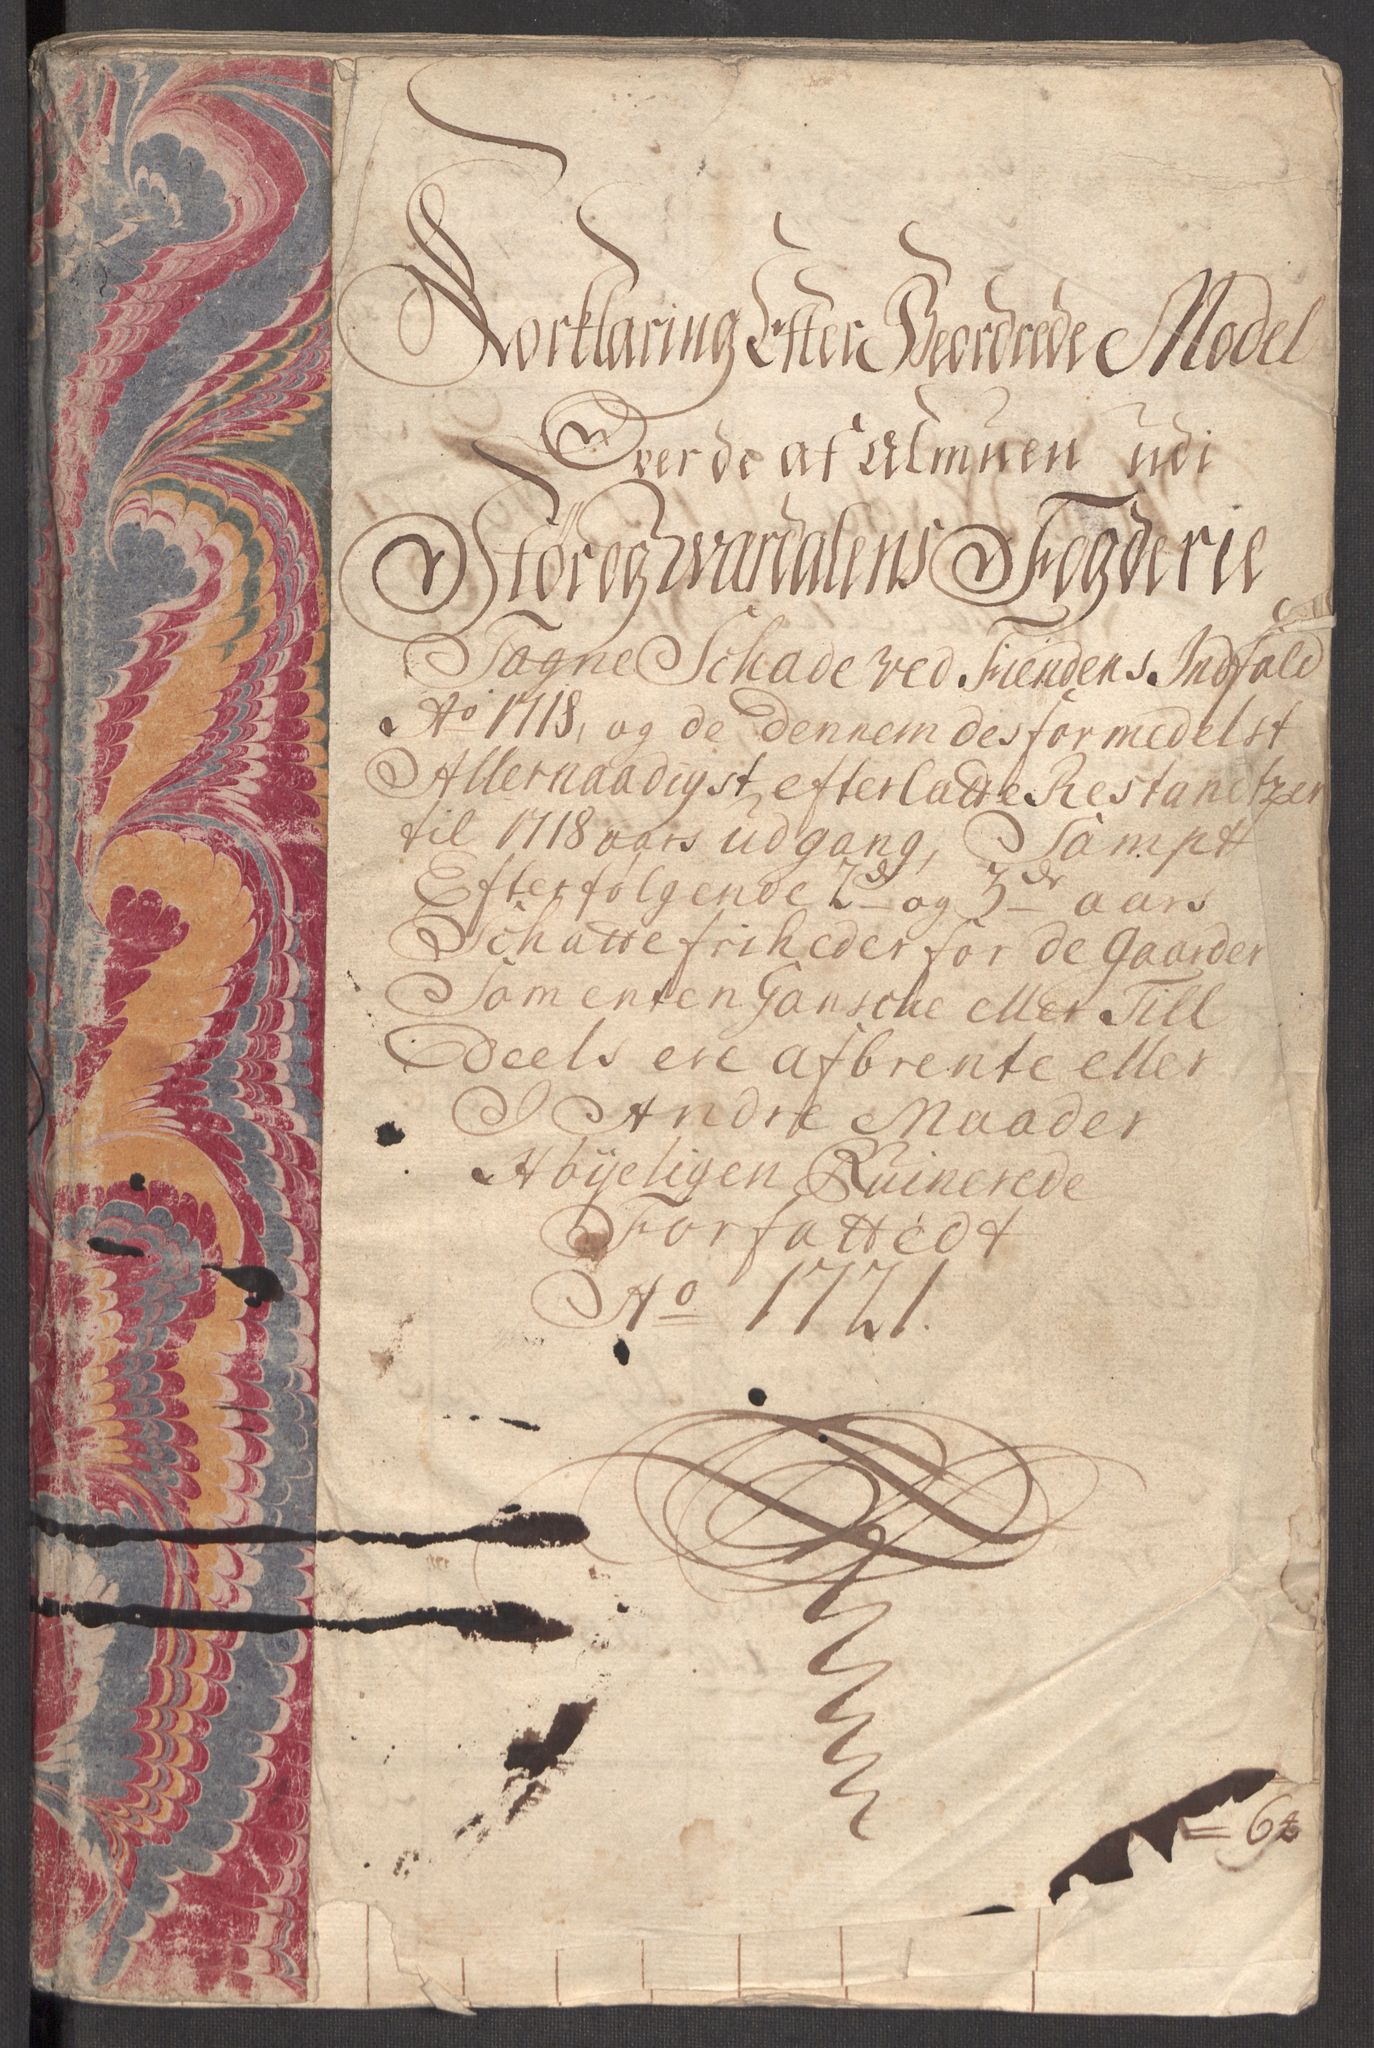 Forklaring Efter Beordrede Model
Over de af Almuen udi
Stör og Værdalens Fogderie
Tagne Schade ved Fiendens Indfald
Ao 1718, og de dennem desformedelst
Allernaadigst efterladtte Restandtzer
til 1718 aars udgang, Sampt
Efterfølgende 2de og 3de aars
Schatte friheder for de gaarder
Som enten Gansche eller Till
Deels ere afbrente eller
I Andre Maader
Høyeligen Ruinerede
Forfattedt
Ao 1721.
= 6